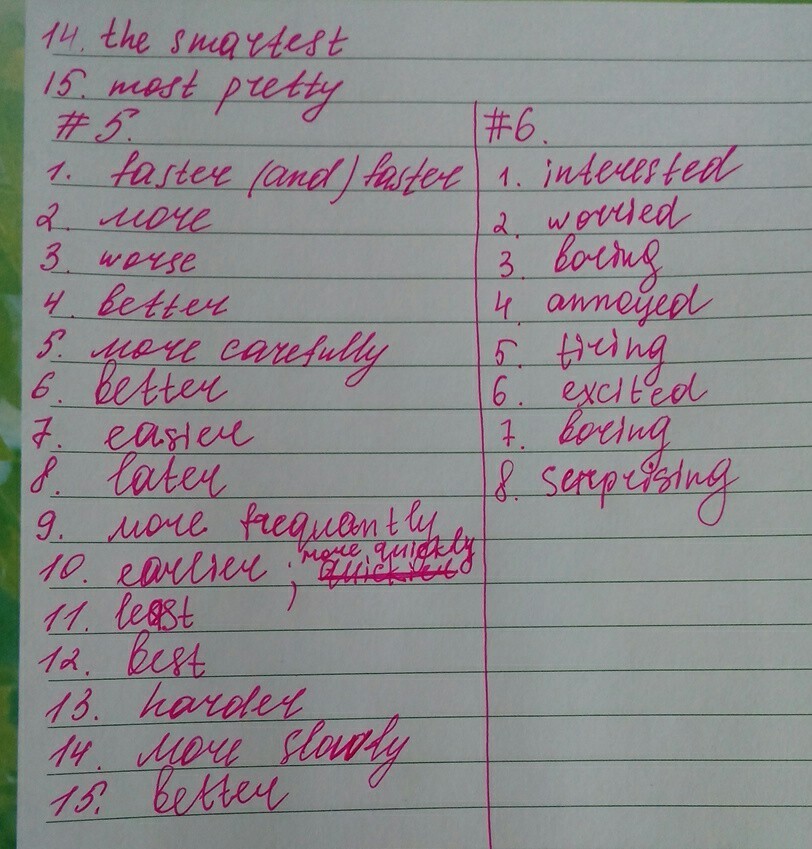 14. the smartest
15. most pretty
#5.
1. faster (and) faster
2. more
3. worse
4. better
5. more carefully
6. better
7. easier
8. later
9. more frequantly
10. earlier ; more quickly
11. least
12. best
13. harder
14. more slowly
15. better
#6.
1. interested
2. worried
3. boring
4. annoyed
5. tiring
6. excited
7. boring
8. surprising